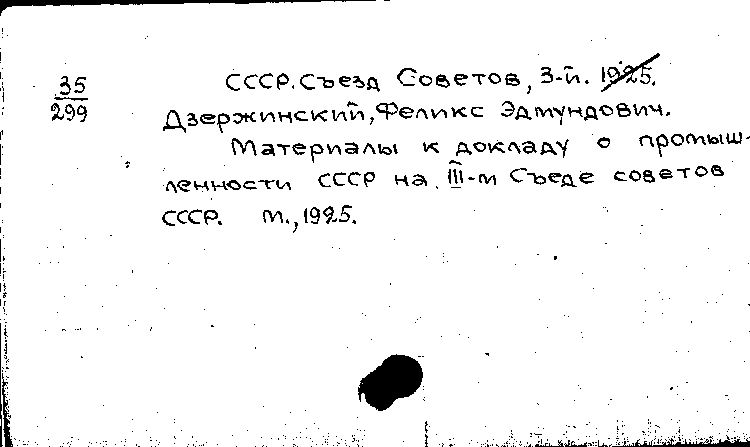 35
299
СССР. Съезд Советов, 3-й. 1925.
Дзержинский, Феликс Эдмундович.
Материалы к докладу о промыш-
ленности СССР на III-м Съеде советов
СССР. М., 1925.